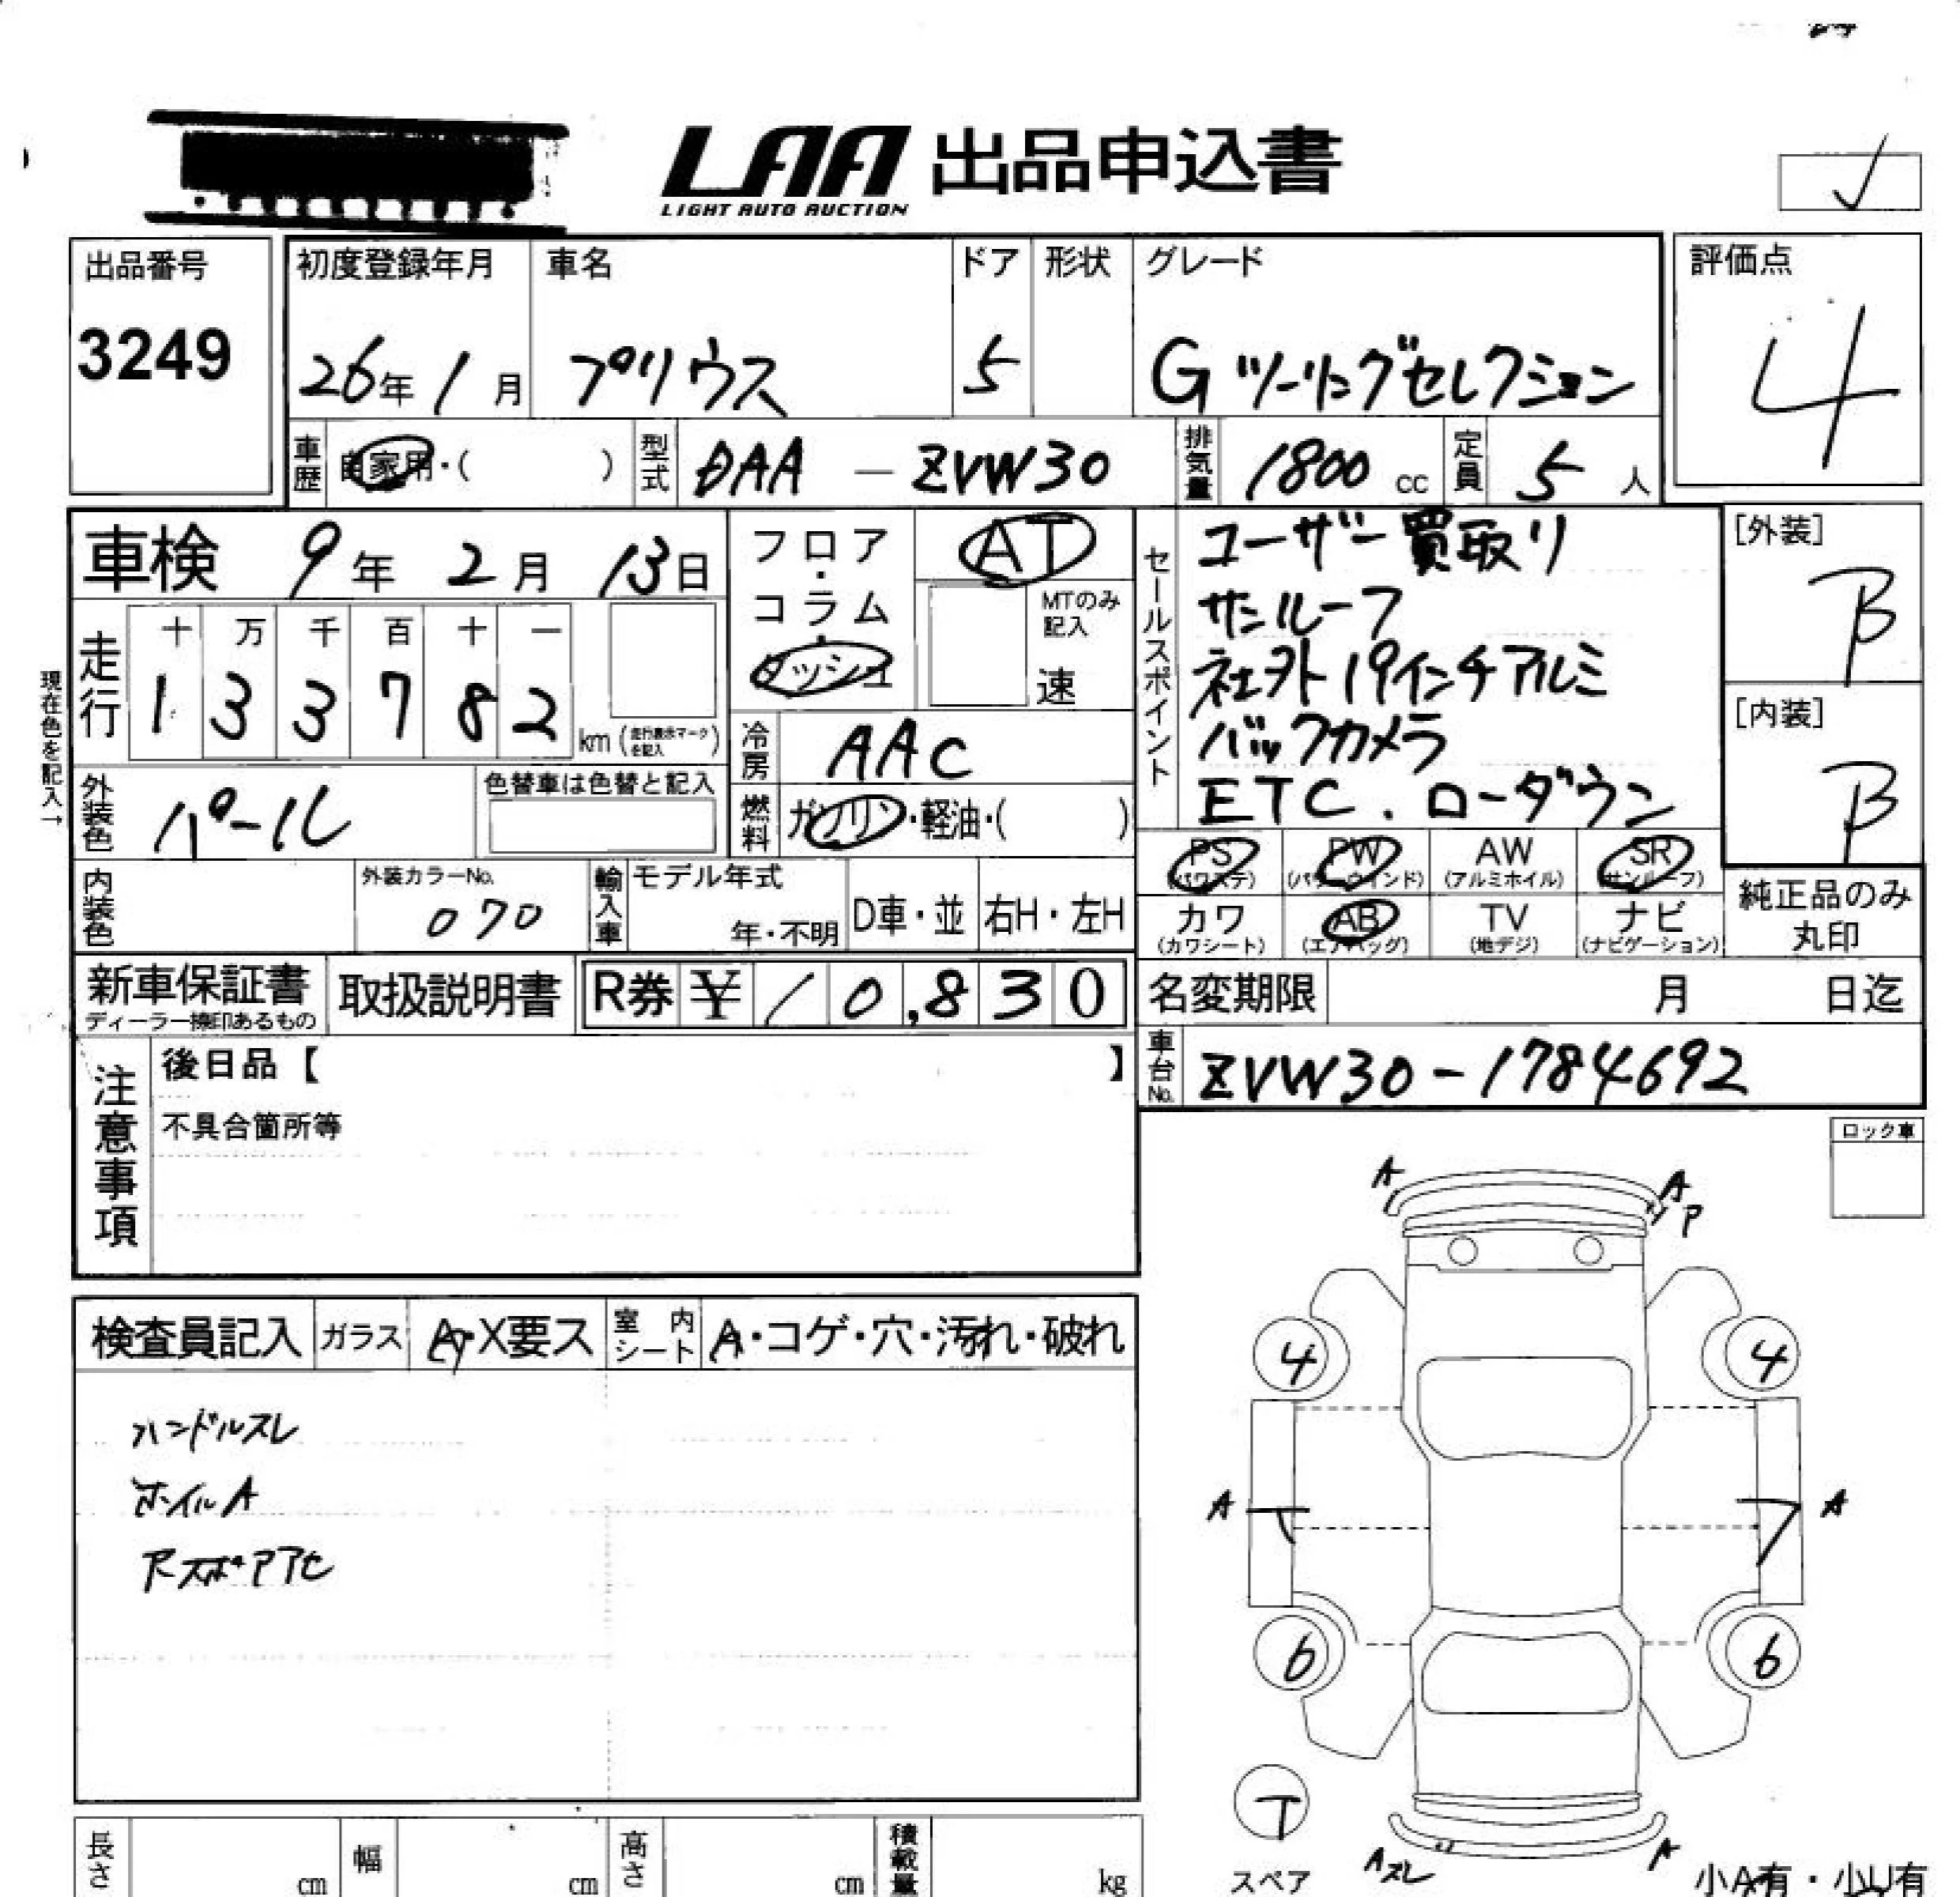 LAA 出品申込書
LIGHT AUTO AUCTION
出品番号
3249
初度登録年月
26年 1月
車名
プリウス
ドア
5
形状
グレード
Gツーリングセレクション
評価点
4
車歴
自家用・( )
型式
DAA - ZVW30
排気量
1800 cc
定員
5 人
車検 9年 2月 13日
走行
十 万 千 百 十 一
1 3 3 7 8 2
km (走行表示マークを記入)
現在色を記入→
外装色
パール
色替車は色替と記入
内装色
外装カラーNo.
070
フロア・コラム・ダッシュ
AT
MTのみ記入
速
冷房
AAC
燃料
ガソリン・軽油・( )
輸入車
モデル年式
年・不明
D車・並
右H・左H
セールスポイント
ユーザー買取り
サンルーフ
社外19インチアルミ
バックカメラ
ETC.ローダウン
[外装]
B
[内装]
B
PS (パワステ)
PW (パワーウインド)
AW (アルミホイル)
SR (サンルーフ)
カワ (カワシート)
AB (エアバッグ)
TV (地デジ)
ナビ (ナビゲーション)
純正品のみ
丸印
新車保証書
ディーラー捺印あるもの
取扱説明書
R券 ¥10,830
名変期限 月 日迄
車台No.
ZVW30-1784692
注意事項
後日品【 】
不具合箇所等
ロック車
検査員記入
ガラス
A・X要ス
室内シート
A・コゲ・穴・汚れ・破れ
ハンドルスレ
ホイルA
A
A
P
4
4
A
A
6
6
T
スペア
Aスレ
A
小A有・小U有
長さ cm
幅 cm
高さ cm
積載量 kg